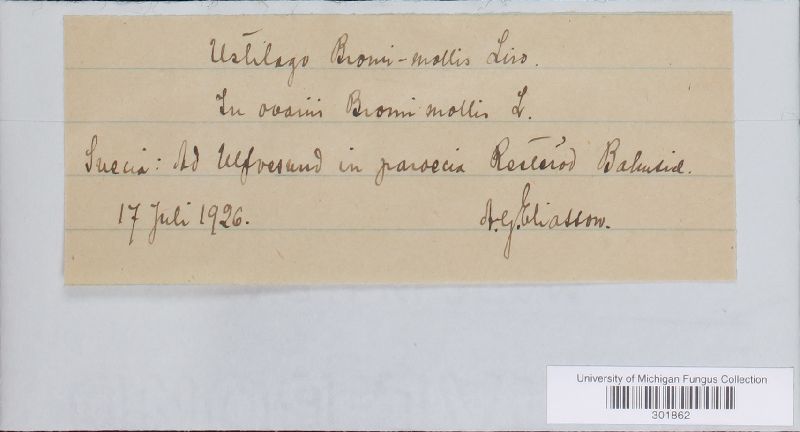 Ustilago Bromi-mollis Liro.
In ovariis Bromi mollis L.
Suecia: Ad Ulfvesund in paroecia Resteröd Bahusiæ.
17 Juli 1926. A.G. Eliasson.
University of Michigan Fungus Collection
301862